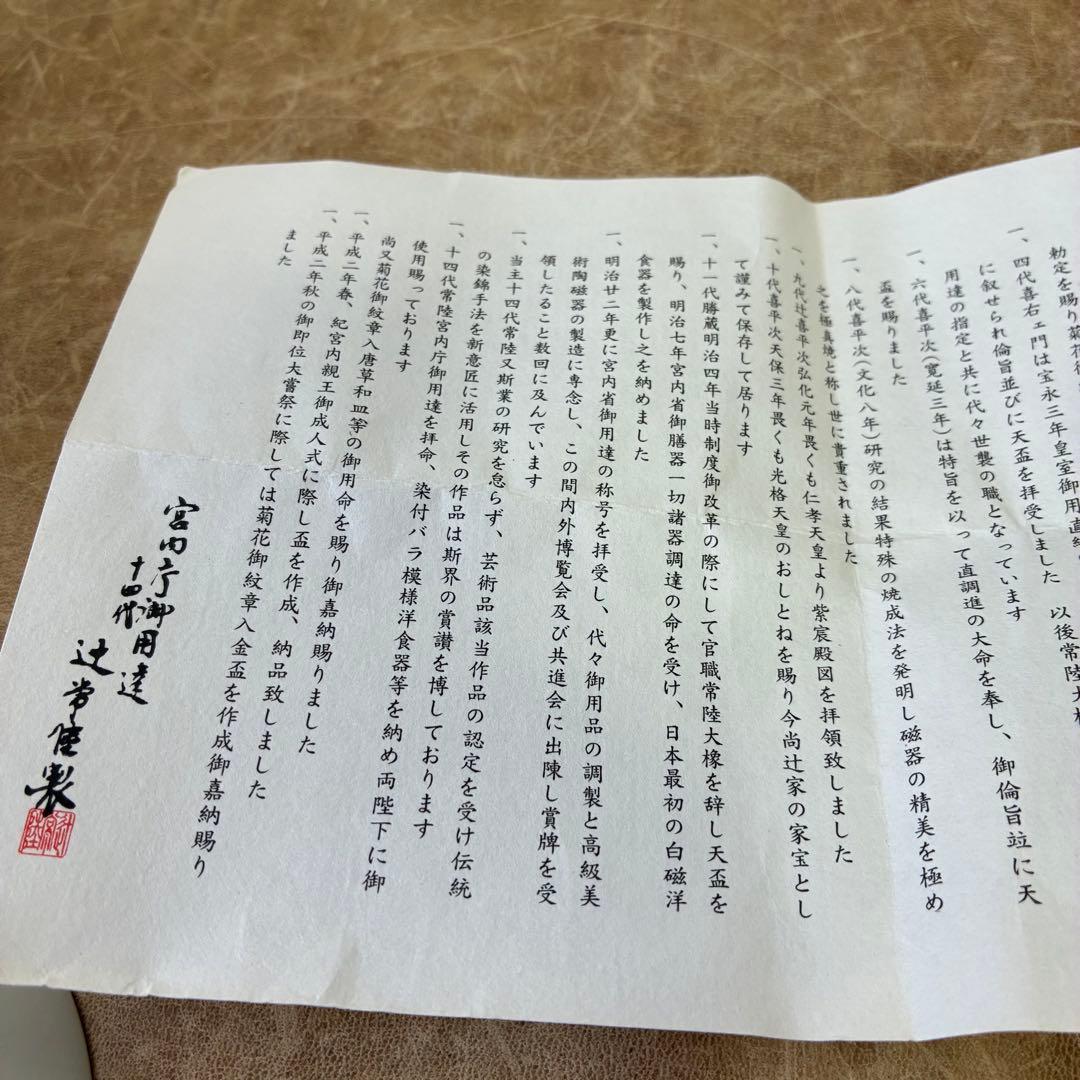 勅定を賜り菊花御
一、四代喜右ェ門は宝永三年皇室御用直
に叙せられ倫旨並びに天盃を拝受しました 以後常陸大椽
用達の指定と共に代々世襲の職となっています
一、六代喜平次(寛延三年)は特旨を以って直調進の大命を奉し、御倫旨竝に天
盃を賜りました
一、八代喜平次(文化八年)研究の結果特殊の焼成法を発明し磁器の精美を極め
之を極真焼と称し世に貴重されました
一、九代辻喜平次弘化元年畏くも仁孝天皇より紫宸殿図を拝領致しました
一、十代喜平次天保三年畏くも光格天皇のおしとねを賜り今尚辻家の家宝とし
て謹みて保存して居ります
一、十一代勝蔵明治四年当時制度御改革の際にして官職常陸大椽を辞し天盃を
賜り、明治七年宮内省御膳器一切諸器調達の命を受け、日本最初の白磁洋
食器を製作し之を納めました
一、明治廿二年更に宮内省御用達の称号を拝受し、代々御用品の調製と高級美
術陶磁器の製造に専念し、この間内外博覧会及び共進会に出陳し賞牌を受
領したること数回に及んでいます
一、当主十四代常陸又斯業の研究を怠らず、芸術品該当作品の認定を受け伝統
の染錦手法を新意匠に活用しその作品は斯界の賞讃を博しております
一、十四代常陸宮内庁御用達を拝命、染付バラ模様洋食器等を納め両陛下に御
使用賜っております
尚又菊花御紋章入唐草和皿等の御用命を賜り御嘉納賜りました
一、平成二年春、紀宮内親王御成人式に際し盃を作成、納品致しました
一、平成二年秋の御即位大嘗祭に際しては菊花御紋章入金盃を作成御嘉納賜り
ました
宮内庁御用達
十四代
辻常陸製